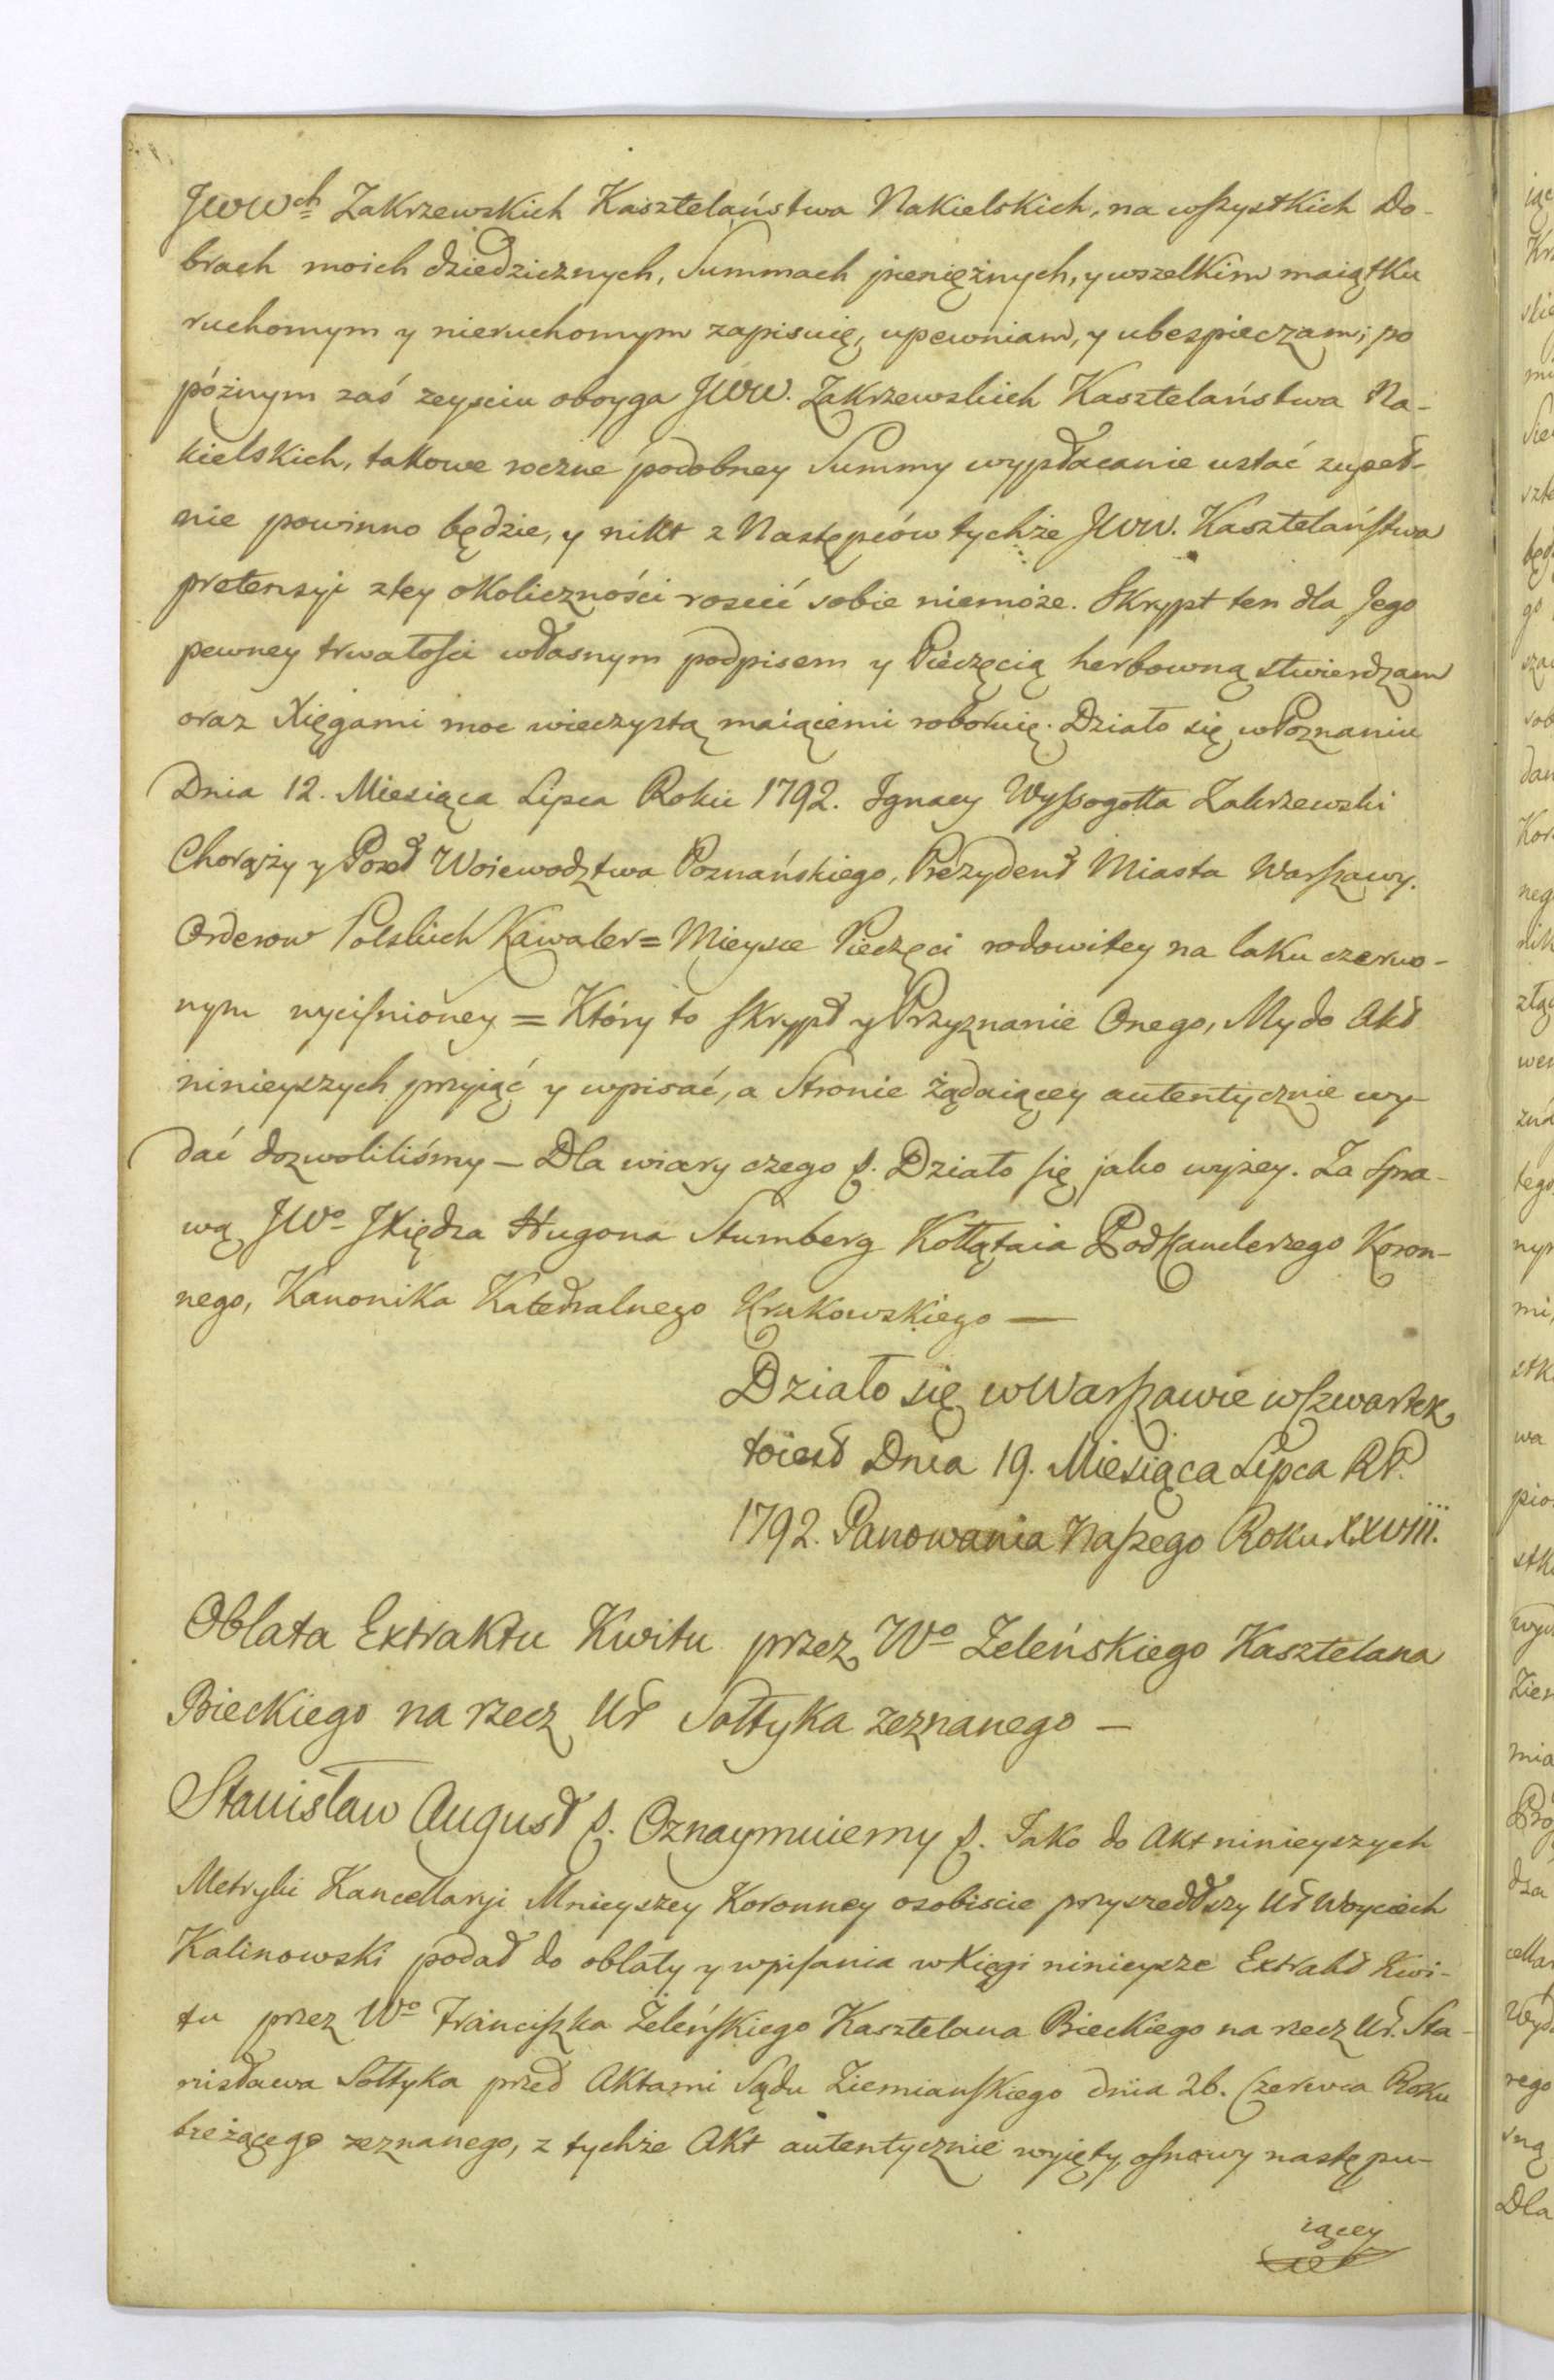 JWWch Zakrzewskich Kasztelaństwa Nakielskich, na wszystkich Do-
brach moich dziedzicznych, Summach pieniężnych, y wszelkim maiątku
ruchomym y nieruchomym zapisuię, upewniam, y ubezpieczam; po
póżnym zaś zeysciu oboyga JWW. Zakrzewskich Kasztelaństwa Na-
kielskich, takowe roczne podobney Summy wypłacanie ustać zupeł-
nie powinno będzie, y nikt z Następców tychże JWW. Kasztelaństwa
pretensyi ztey okoliczności roscić sobie niemoże. Skrypt ten dla Jego
pewney trwałosci własnym podpisem y Pieczęcią herbowną stwierdzam
oraz Xięgami moc wieczystą maiącemi roboruię. Działo się w Poznaniu
Dnia 12. Miesiąca Lipca Roku 1792. Ignacy Wyssogotta Zakrzewski
Chorąży y Poseł Woiewodztwa Poznańskiego, Prezydent Miasta Warszawy.
Orderow Polskich Kawaler = Mieysce Pieczęci rodowitey na laku czerwo-
nym wycisnioney = Który to skrypt y Przyznanie Onego, My do Akt
ninieyszych przyiąć y wpisać, a Stronie żądaiącey autentycznie wy-
dać dozwoliliśmy — Dla wiary czego p. Działo się jako wyżey. Za Spra-
wą JWo JXiędza Hugona Stumberg Kołłątaia Podkanclerzego Koron-
nego, Kanonika Katedralnego Krakowskiego —
Działo się w Warszawie w Czwartek
toiest Dnia 19. Miesiąca Lipca RP.
1792. Panowania Naszego Roku XXVIII.
Oblata Extraktu Kwitu przez Wo Zeleńskiego Kasztelana
Bieckiego na rzecz Ur Sołtyka zeznanego —
Stanisław August p. Oznaymuiemy p. Iako do Akt ninieyszych
Metryki Kancellaryi Mnieyszey Koronney osobiscie przyszedłszy Ur Woyciech
Kalinowski podał do oblaty y wpisania w Xięgi ninieysze Extrakt Kwi-
tu przez Wo Franciszka Żeleńskiego Kasztelana Bieckiego na rzecz Ur. Sta-
nisława Sołtyka przed Aktami Sądu Ziemianskiego dnia 26. Czerwca Roku
bieżącego zeznanego, z tychże Akt autentycznie wyięty, osnowy następu-
iącey